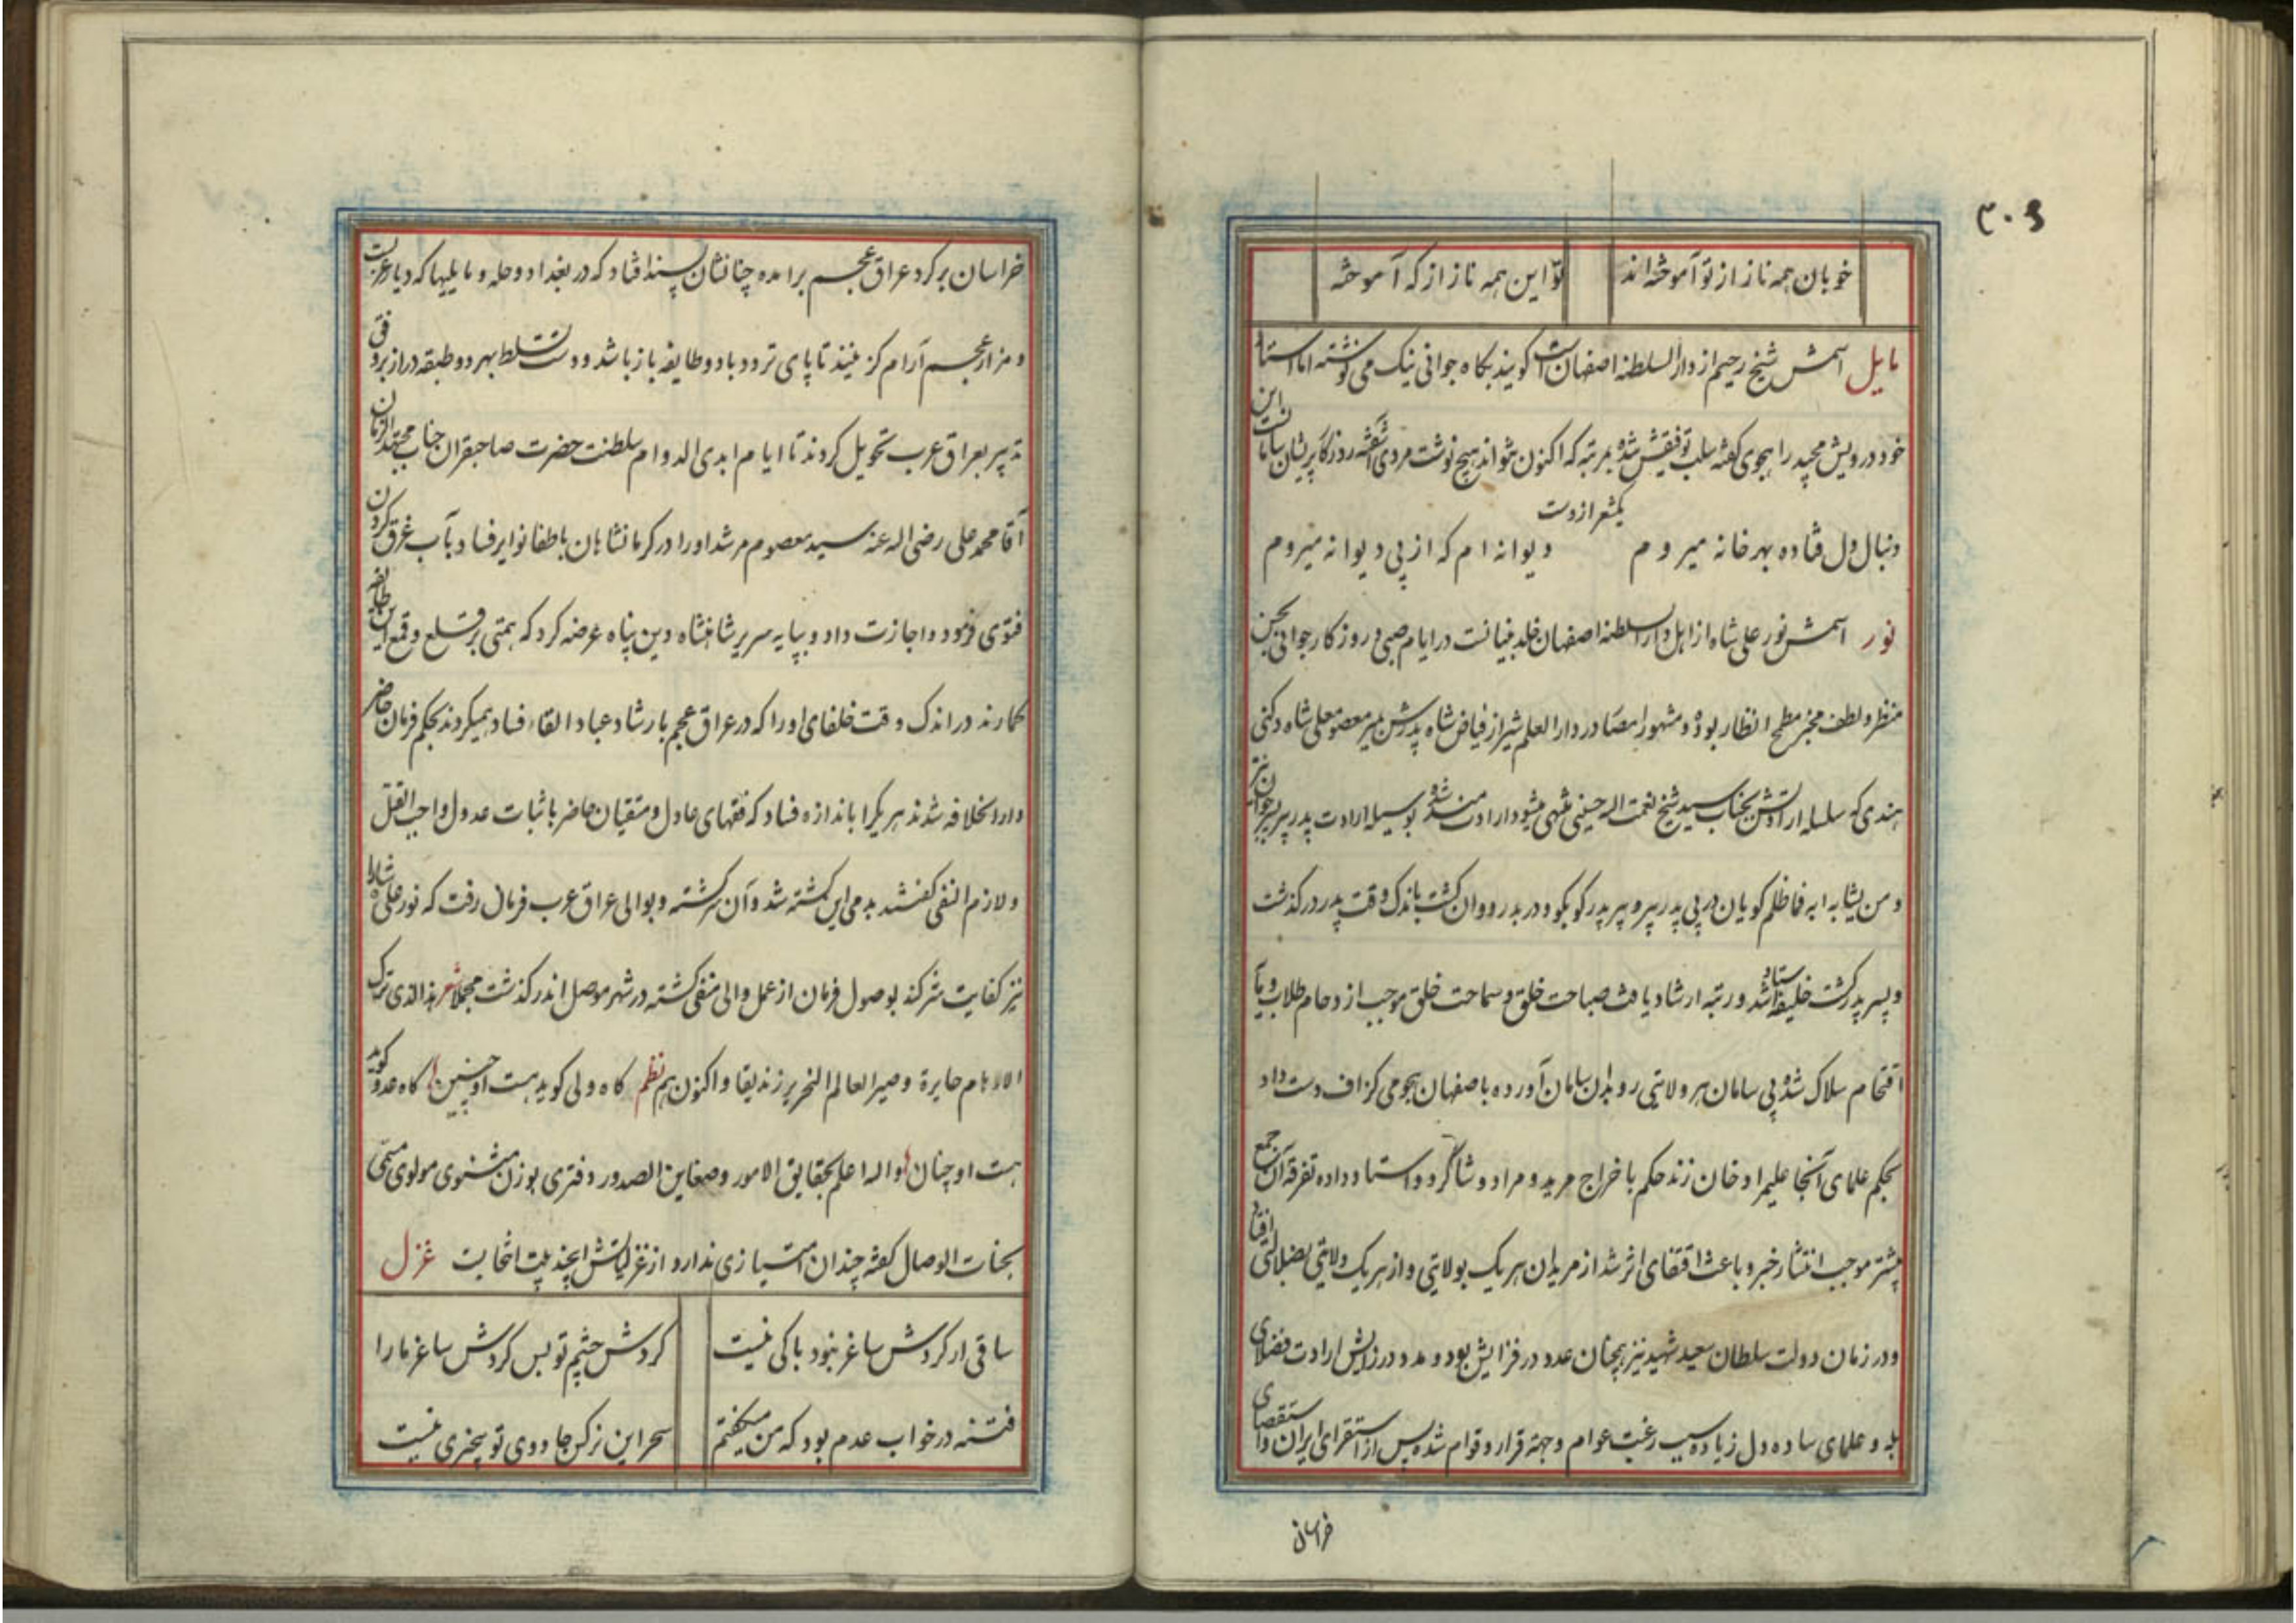 ۳۰۶
خوبان همه ناز از تو آموخته‌اند تو این همه ناز از که آموخته
مایل اسمش شیخ رحیم از دارالسلطنه اصفهان است گویند بگاه جوانی نیک می نوشته اما استاد
خود درویش مجید را هجوی گفته سلب توفیقش شده بمرتبه که اکنون نتواند هیچ نوشت مردی آشفته روزگار پریشان سامانست این
یکشعر ازوست
دنبال دل فتاده بهر خانه میروم دیوانه ام که از پی دیوانه میروم
نور اسمش نور علی شاه از اهل دارالسلطنه اصفهان خلد بنیانست در ایام صبی و روزگار جوانی بحسن
منظر و لطف مخبر مطمح انظار بوده و مشهور امصار در دارالعلم شیراز فیاض شاه پدرش بمیر معصوم علی شاه دکنی
هندی که سلسله ارادتش بجناب سید شیخ نعمت اله حسینی منتهی میشود ارادتمند شده بوسیله ارادت پدر پیر پسر جوان نیز
و من یشابه ابه فما ظلم گویان در پی پدر پیر و پیر پدر کو بکو و در بدر دوان گشت باندک وقت پدر در گذشت
و پسر پدر گشت خلیفه استاد شد و رتبه ارشاد یافت صباحت خلق و سماحت خلق موجب ازدحام طلاب و
اقتحام سلاک شده پی سامان هر ولایتی رو بدان سامان آورده باصفهان هجومی گزاف دست داد
بحکم علمای آنجا علیمراد خان زند حکم باخراج مرید و مراد و شاگرد و استاد داده تفرقه آن جمع
بیشتر موجب انتشار خبر و باعث اقتفای اثر شد از مریدان هر یک بولایتی و از هر یک ولایتی بضلالتی افتاد
و در زمان دولت سلطان سعید شهید نیز همچنان عدد در فزایش بود و مدد در زایش ارادت فضلای
بله و علمای ساده دل زیاده سبب رغبت عوام و جهة قرار و قوام شده پس از استقرای ایران و استقصای
خراسان
خراسان بر گرد عراق عجم برامده چنانشان پسند افتاد که در بغداد و حله و که دیار عربست
و مزار عجم آرام گزینند تا پای تردد باد و طایفه باز باشد و دست تسلط بهر دو طبقه دراز بر وفق
تدبیر بعراق عرب تحویل کردند تا ایام ابدی الدوام سلطنت حضرت صاحبقران جناب مجتهد الزمان
آقا محمد علی رضی اله عنه سید معصوم مرشد او را در کرمانشاهان باطفا نوایر فساد بآب غرق کردن
فتوی فرمود و اجازت داد و بپایه سریر شاهنشاه دین پناه عرضه کرد که همتی بر قلع و قمع این طایفه
گمارند در اندک وقت خلفای او را که در عراق عجم بارشاد عباد القاء فساد همیکردند بحکم فرمان حاضر
دارالخلافه شدند هر یکرا باندازه فساد که فقهای عادل و متقیان حاضر باثبات عدول واجب القتل
و لازم النفی گفتند بدمی این کشته شد و آن سرگشته و بوالی عراق عرب فرمان رفت که نور علی شاه را
نیز کفایت شر کند بوصول فرمان از عمل والی منفی گشته در شهر موصل اندر گذشت مجملا شعر هذا الذی ترک
الاوهام حایرة و صیر العالم النحریر زندیقا و اکنون هم نظم گاه ولی گوید هست او چنین گاه عدو گوید
هست او چنان واله اعلم بحقایق الامور و ضغاین الصدور دفتری بوزن مثنوی مولوی مسمی
بجنات الوصال گفته چندان امتیازی ندارد از غزلیاتش این چند بیت انتخابست غزل
ساقی ار گردش ساغر نبود باکی نیست گردش چشم تو بس گردش ساغر ما را
فتنه در خواب عدم بود که من میگفتم سحر این نرگس جادوی تو بیخبری نیست